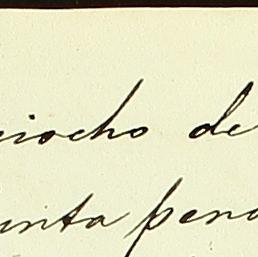 iocho de
unta pena